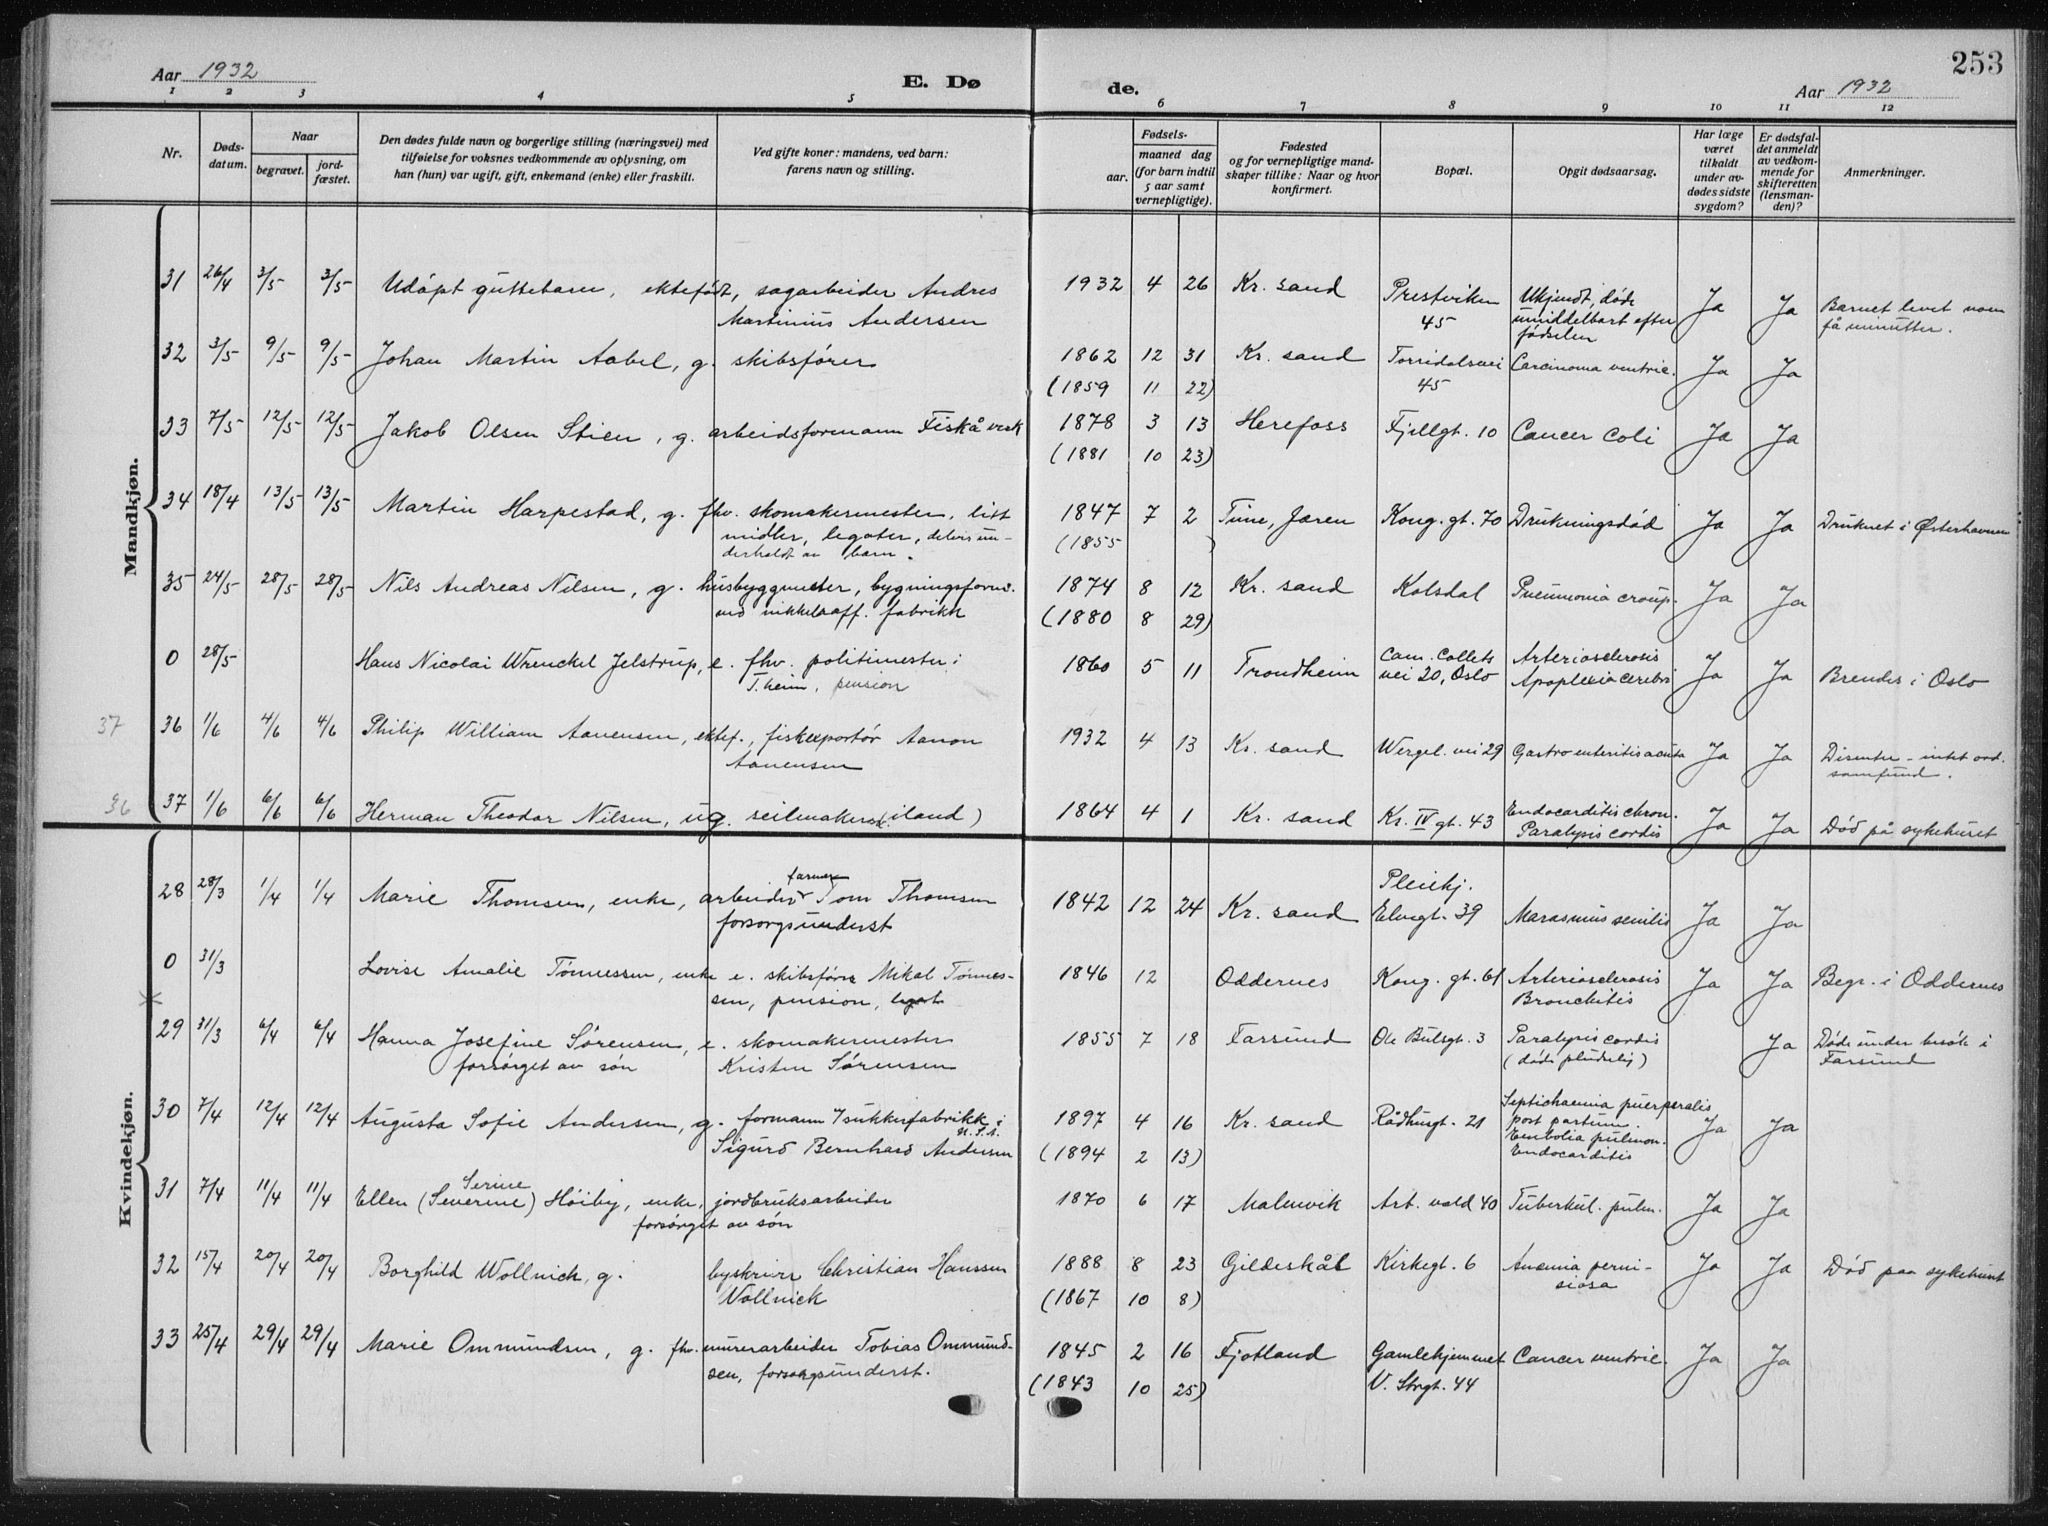 253
Aar 1932
E. Døde.
Aar 1932
1 2 3 4 5 6 7 8 9 10 11 12
Nr.
Døds-
datum.
Naar
begravet.
jord-
fæstet.
Den dødes fulde navn og borgerlige stilling (næringsvei) med
tilføielse for voksnes vedkommende av oplysning, om
han (hun) var ugift, gift, enkemand (enke) eller fraskilt.
Ved gifte koner: mandens, ved barn:
farens navn og stilling.
Fødsels-
aar.
maaned dag
(for barn indtil
5 aar samt
vernepligtige).
Fødested
og for vernepligtige mand-
skaper tillike: Naar og hvor
konfirmert.
Bopæl.
Opgit dødsaarsag.
Har læge
været
tilkaldt
under av-
dødes sidste
sygdom?
Er dødsfal-
det anmeldt
av vedkom-
mende for
skifteretten
(lensman-
den)?
Anmerkninger.
Mandkjøn.
31 26/4 3/5 3/5 Udöpt guttebarn, ektefödt, sagarbeider Andres
Martinius Andersen
1932 4 26 Kr. sand Prestviken
45
Ukjendt, döde
umiddelbart efter
födselen
Ja Ja Barnet levet noen
få minutter.
32 3/5 9/5 9/5 Johan Martin Aabel, g. skibsfører
1862 12 31 Kr. sand Torridalsvei
45
Carcinoma ventric. Ja Ja
(1859 11 22)
33 7/5 12/5 12/5 Jakob Olsen Stien, g. arbeidsformann Fiskå verk
1878 3 13 Herefoss Fjellgt. 10 Cancer coli Ja Ja
(1881 10 23)
34 18/4 13/5 13/5 Martin Harpestad, g. fhv. skomakermester, litt
midler, legater, delvis un-
derholdt av barn.
1847 7 2 Time, Jæren Kong. gt. 70 Drukningsdöd Ja Ja Druknet i Østerhavnen
(1855 )
35 24/5 28/5 28/5 Nils Andreas Nilsen, g. husbyggmester, bygningsform.
ved nikkelraff. fabrikk
1874 8 12 Kr. sand Kolsdal Pneumonia croup. Ja Ja
(1880 8 29)
0 28/5 Hans Nicolai Wrenckel Jelstrup, e. fhv. politimester i
T.heim, pension
1860 5 11 Trondheim Cam. Collets
vei 20, Oslo
Arteriosclerosis
Apoplexia cerebri
Ja Ja Brendes i Oslo
37 36 1/6 4/6 4/6 Philip William Aanensen, ektef., fiskexportör Aanon
Aanensen
1932 4 13 Kr. sand Wergel. vei 29 Gastroenteritis acuta Ja Ja Disenter - intet ord.
samfund.
36 37 1/6 6/6 6/6 Herman Theodor Nilsen, ug. seilmaker iland)
1864 4 1 Kr. sand Kr. IV gt. 43 Endocarditis chron.
Paralysis cordis
Ja Ja Död på sykehuset
Kvindekjøn.
28 28/3 1/4 1/4 Marie Thomsen, enke, arbeider Tom Thomsen
forsorgsunderst
1842 12 24 Kr. sand Pleiehj.
Elvegt. 39
Marasmus senilis Ja Ja
0 31/3 Lovise Amalie Tönnessen, enke e. skibsförer Mikal Tönnes-
sen, pension, legat
1846 12 Oddernes Kong. gt. 61 Arteriosclerosis
Bronchitis
Ja Ja Begr. i Oddernes
29 31/3 6/4 6/4 Hanna Josefine Sörensen, e. skomakermester
forsörget av sön Kristen Sørensen
1855 7 18 Farsund Ole Bulsgt. 3 Paralysis cordis
(döde pludselig)
Ja Döde under besök i
Farsund
30 7/4 12/4 12/4 Augusta Sofie Andersen, g. formann i sukkerfabrikk i
U.S.A.
Sigurd Bernhard Andersen
1897 4 16 Kr. sand Rådhusgt. 21 Septichaemia puerperalis
post partum.
Embolia pulmon.
Endocarditis
Ja Ja
(1894 2 13)
31 7/4 11/4 11/4 Ellen (Severine) Serine Höiby, enke, jordbruksarbeider
forsörget av sön
1870 6 17 Malmvik Art. vold 40 Tuberkul. pulm. Ja Ja
32 15/4 20/4 20/4 Borghild Wollnick, g. byskriver Christian Hanssen
Wollnick
1888 8 23 Gildeskål Kirkegt. 6 Anæmia perni-
siosa
Ja Ja Död paa sykehuset
(1867 10 8)
33 25/4 29/4 29/4 Marie Ommundsen, g. fhv. murerarbeider Tobias Ommund-
sen, forsorgsunderst.
1845 2 16 Fjotland Gamlehjemmet
V. Strgt. 44
Cancer ventric. Ja Ja
(1843 10 25)